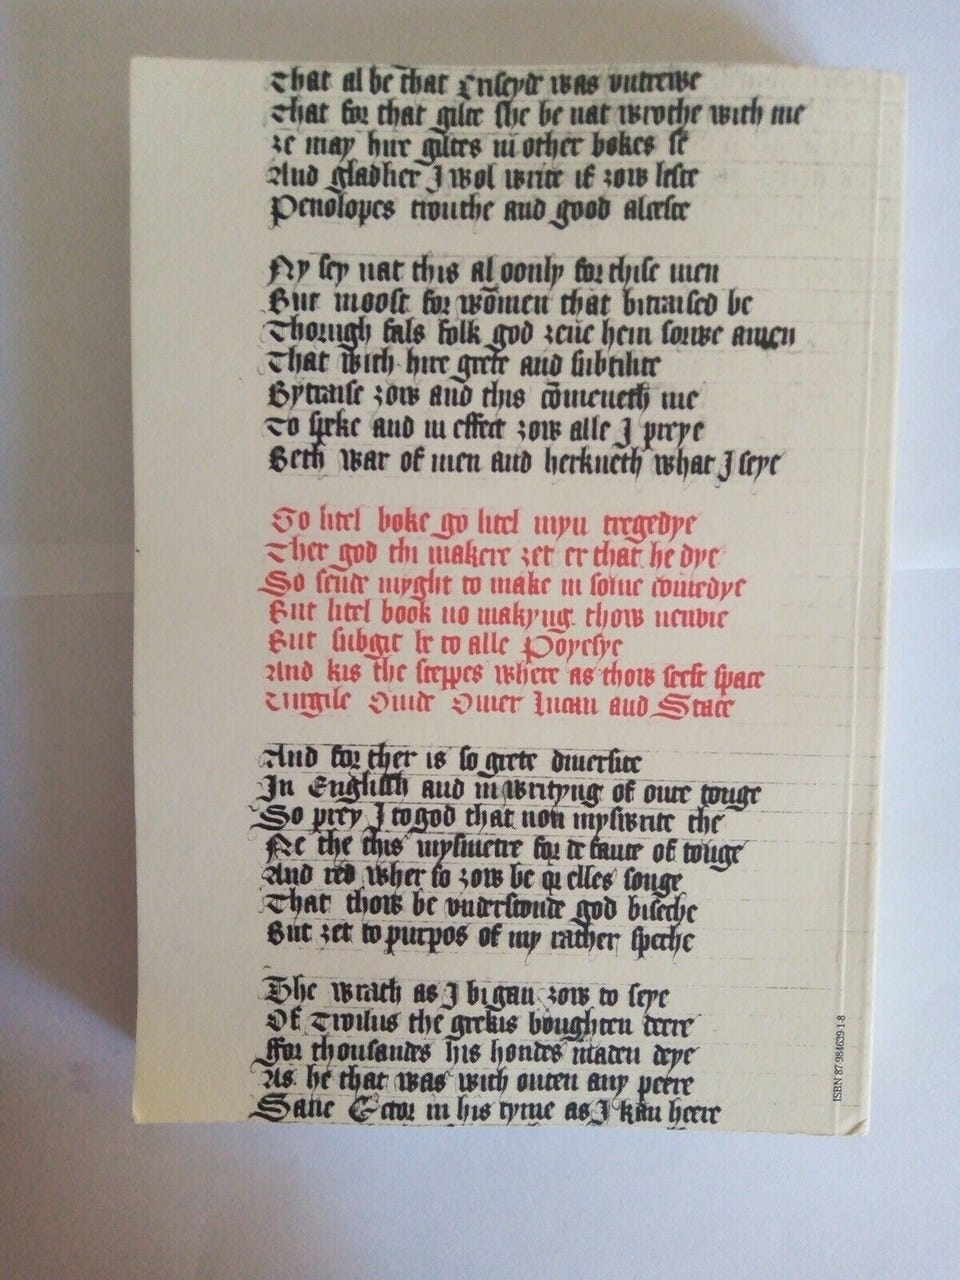 That al be that Criseyde was vntrewe
That for that gilte she be nat wrothe with me
ȝe may hire giltes in other bokes se
And gladlier I wol write if ȝow leste
Penolopes trouthe and good alceste
Ny sey nat this al oonly for thise men
But moost for wōmen that bitraised be
Thorugh fals folk god ȝeue hem sorwe amen
That with hire grete and subtilite
Bytraise ȝow and this cōmeueth me
To speke and in effect ȝow alle I preye
Beth war of men and herkneth what I seye
Go litel boke go litel myn tregedye
Ther god thi makere ȝet er that he dye
So sende myght to make in some comedye
But litel book no makyng thow nenvie
But subgit be to alle Poyesye
And kis the steppes where as thow seest space
Virgile Ouide Omer lucan and Stace
And for ther is so grete diuersite
In Englissh and in writyng of oure tonge
So prey I to god that non myswrite the
Ne the this mysmetre for defaute of tonge
And red wher so ȝow be or elles songe
That thow be vnderstonde god biseche
But ȝet to purpos of my rather speche
The wrath as I bigan ȝow to seye
Of Troilus the grekis boughten deere
ffor thousandes his hondes maden deye
As he that was with outen any peere
Saue Ector in his tyme as I kan heere
ISBN 87-984639-1-8